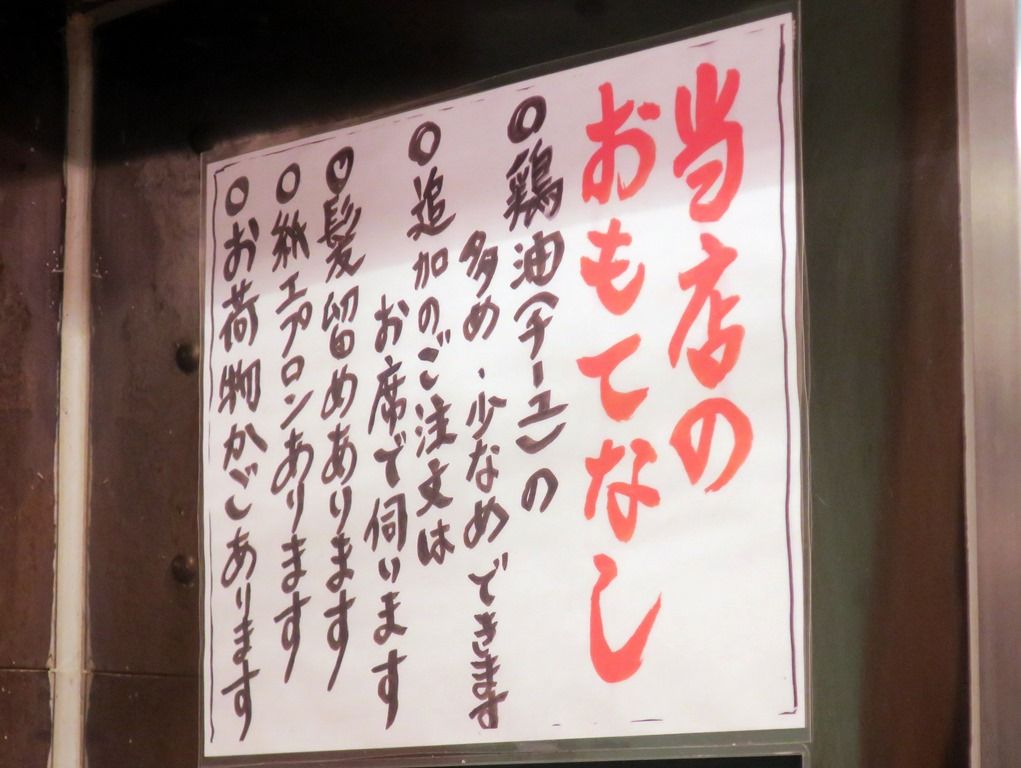 当店の
おもてなし
◎鶏油(チーユ)の
多め・少なめできます
◎追加のご注文は
お席で伺います
◎髪留めあります
◎紙エプロンあります
◎お荷物かごあります